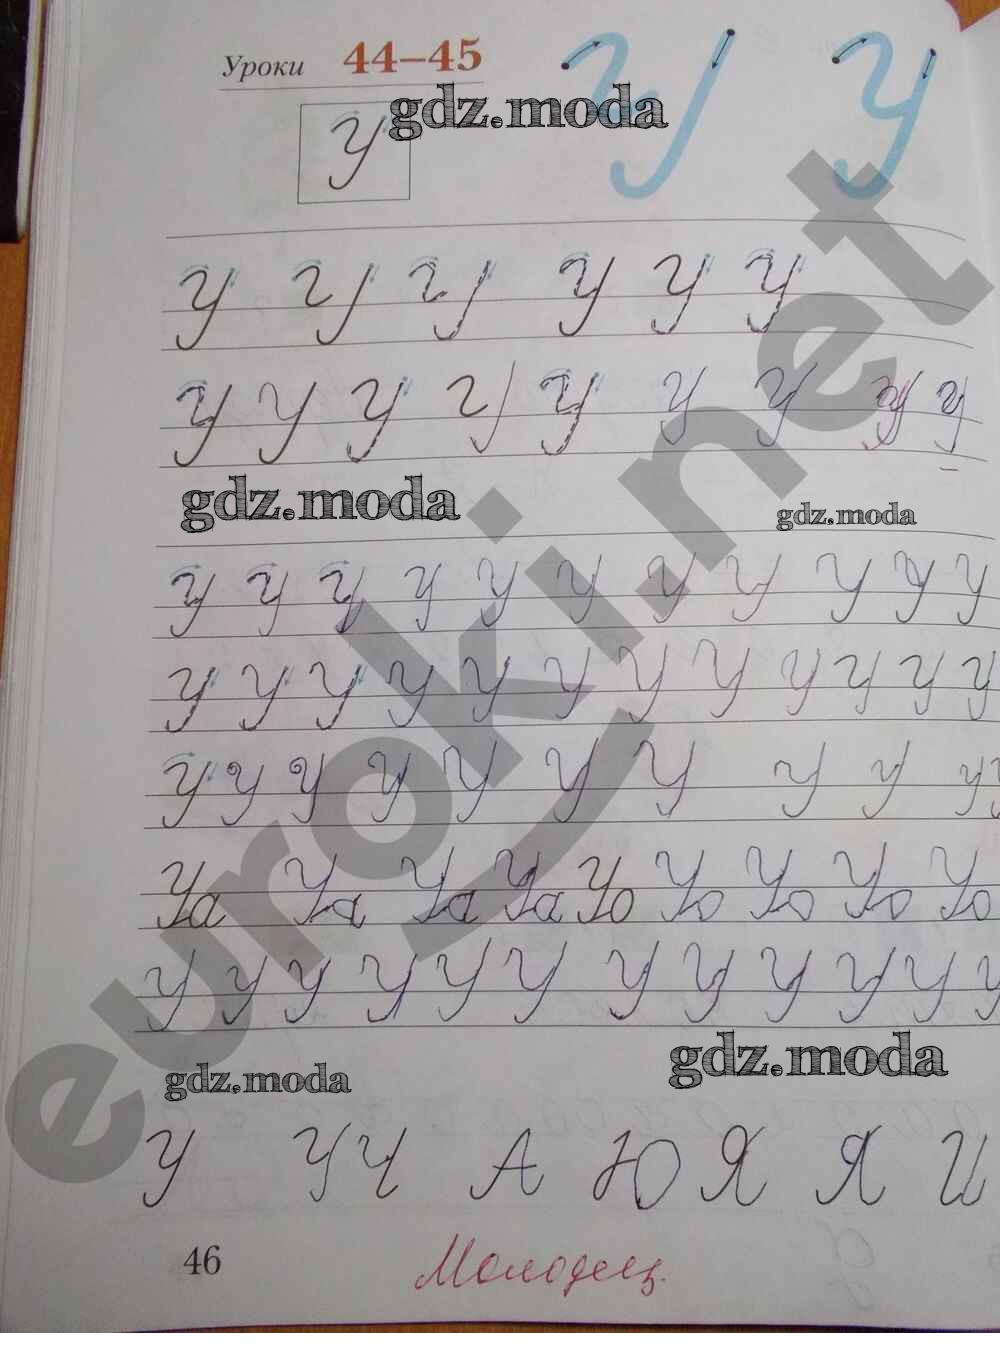 Уроки 44–45
У У
У
gdz.moda
У У У У У У
У У У У У У У У У
gdz.moda
gdz.moda
У У У У У У У У У У У
У У У У У У У У У У У У
У У У У У У У У У У
Уа Уа Уа Уа Уо Уо Уо Уо Уо
У У У У У У У У У У У У
gdz.moda
gdz.moda
У У Ч А Ю Я Я И
46
Молодец.
euroki.net